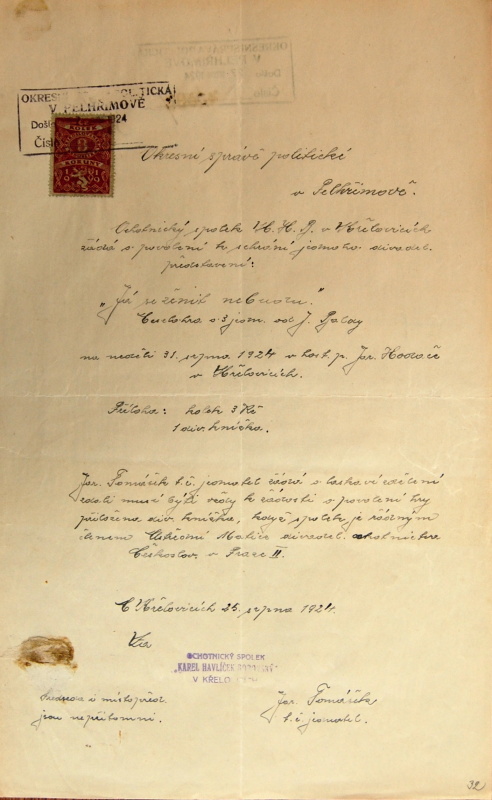 OKRESNÍ POLITICKÁ
V PELHŘIMOVĚ
Došlo 1924
Číslo
KOLEK
3
KORUNY
Okresní správě politické
v Pelhřimově.
Ochotnický spolek K. H. B. v Křelovicích
žádá o povolení k sehrání jednoho divadel.
představení:
"Já se ženit nebudu."
o 3 jedn. od J.
na neděli 31. srpna 1924 v host. p. Jar. Hodače
v Křelovicích.
Příloha: kolek 3 Kč
1 div. knížka.
Jar. Tomášek t. č. jednatel žádá o laskavé sdělení
zdali musí býti vždy k žádosti o povolení hry
přiložena div. knížka, když spolek je řádným
členem Ústřední Matice divadel. ochotnictva
Českoslov. v Praze II.
V Křelovicích 25. srpna 1924.
OCHOTNICKÝ SPOLEK
"KAREL HAVLÍČEK
V KŘELO
Předseda i místopřed.
jsou nepřítomni.
Jar. Tomášek
t. č. jednatel.
32